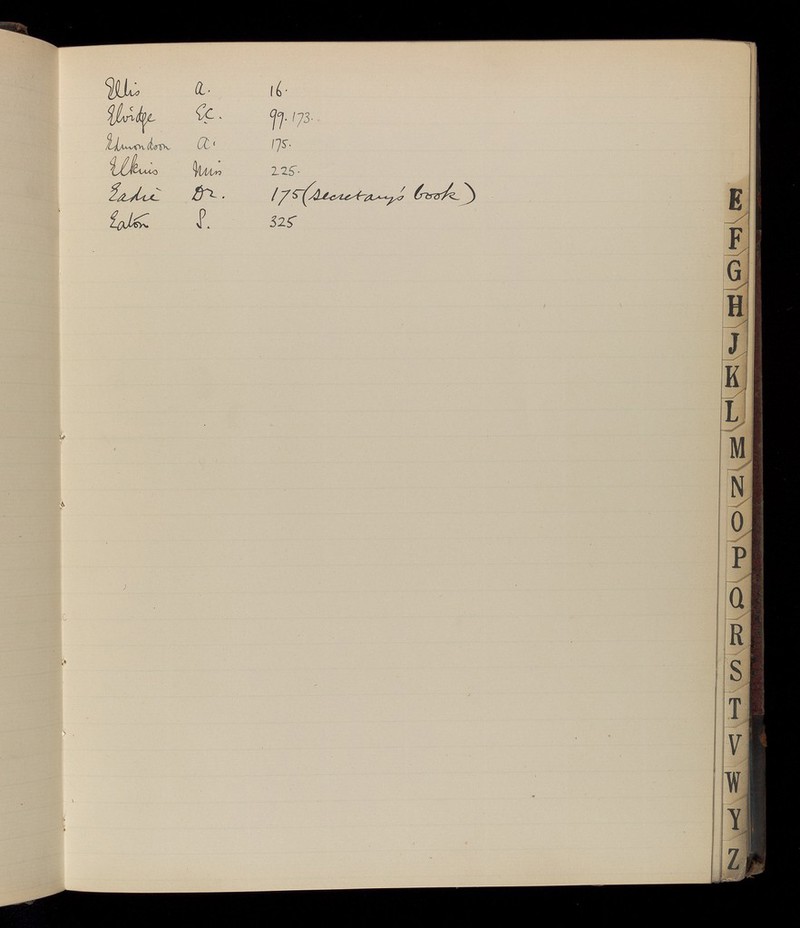 Ellis A. 16.
Elvidge E.C. 99. 173.
Edmondson A. 175.
Elkins Miss 225.
Eadie Dr. 175 (secretary's book)
Eaton S. 325
E
F
G
H
J
K
L
M
N
O
P
Q
R
S
T
V
W
Y
Z